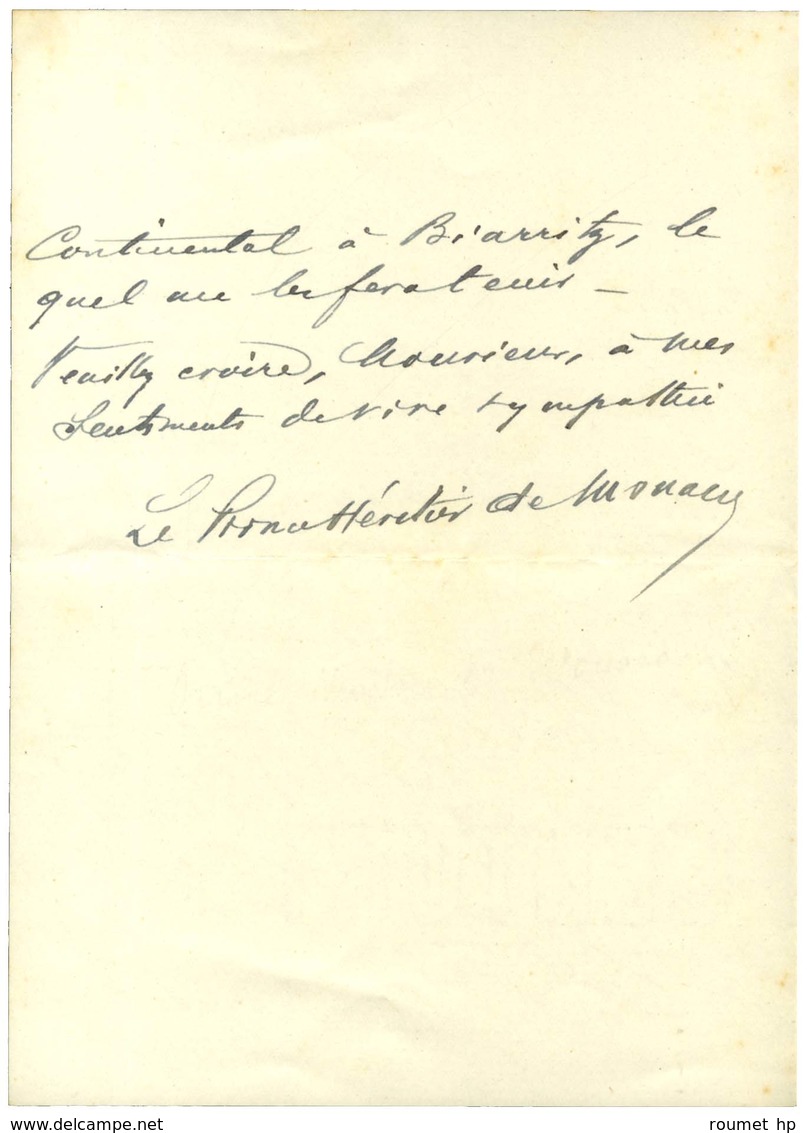 Continental à Biarritz, le
quel me les fera tenir –
Veuillez croire, Monsieur, à mes
Sentiments de vive sympathie
Le Prince Héréditaire de Monaco
roumet hp